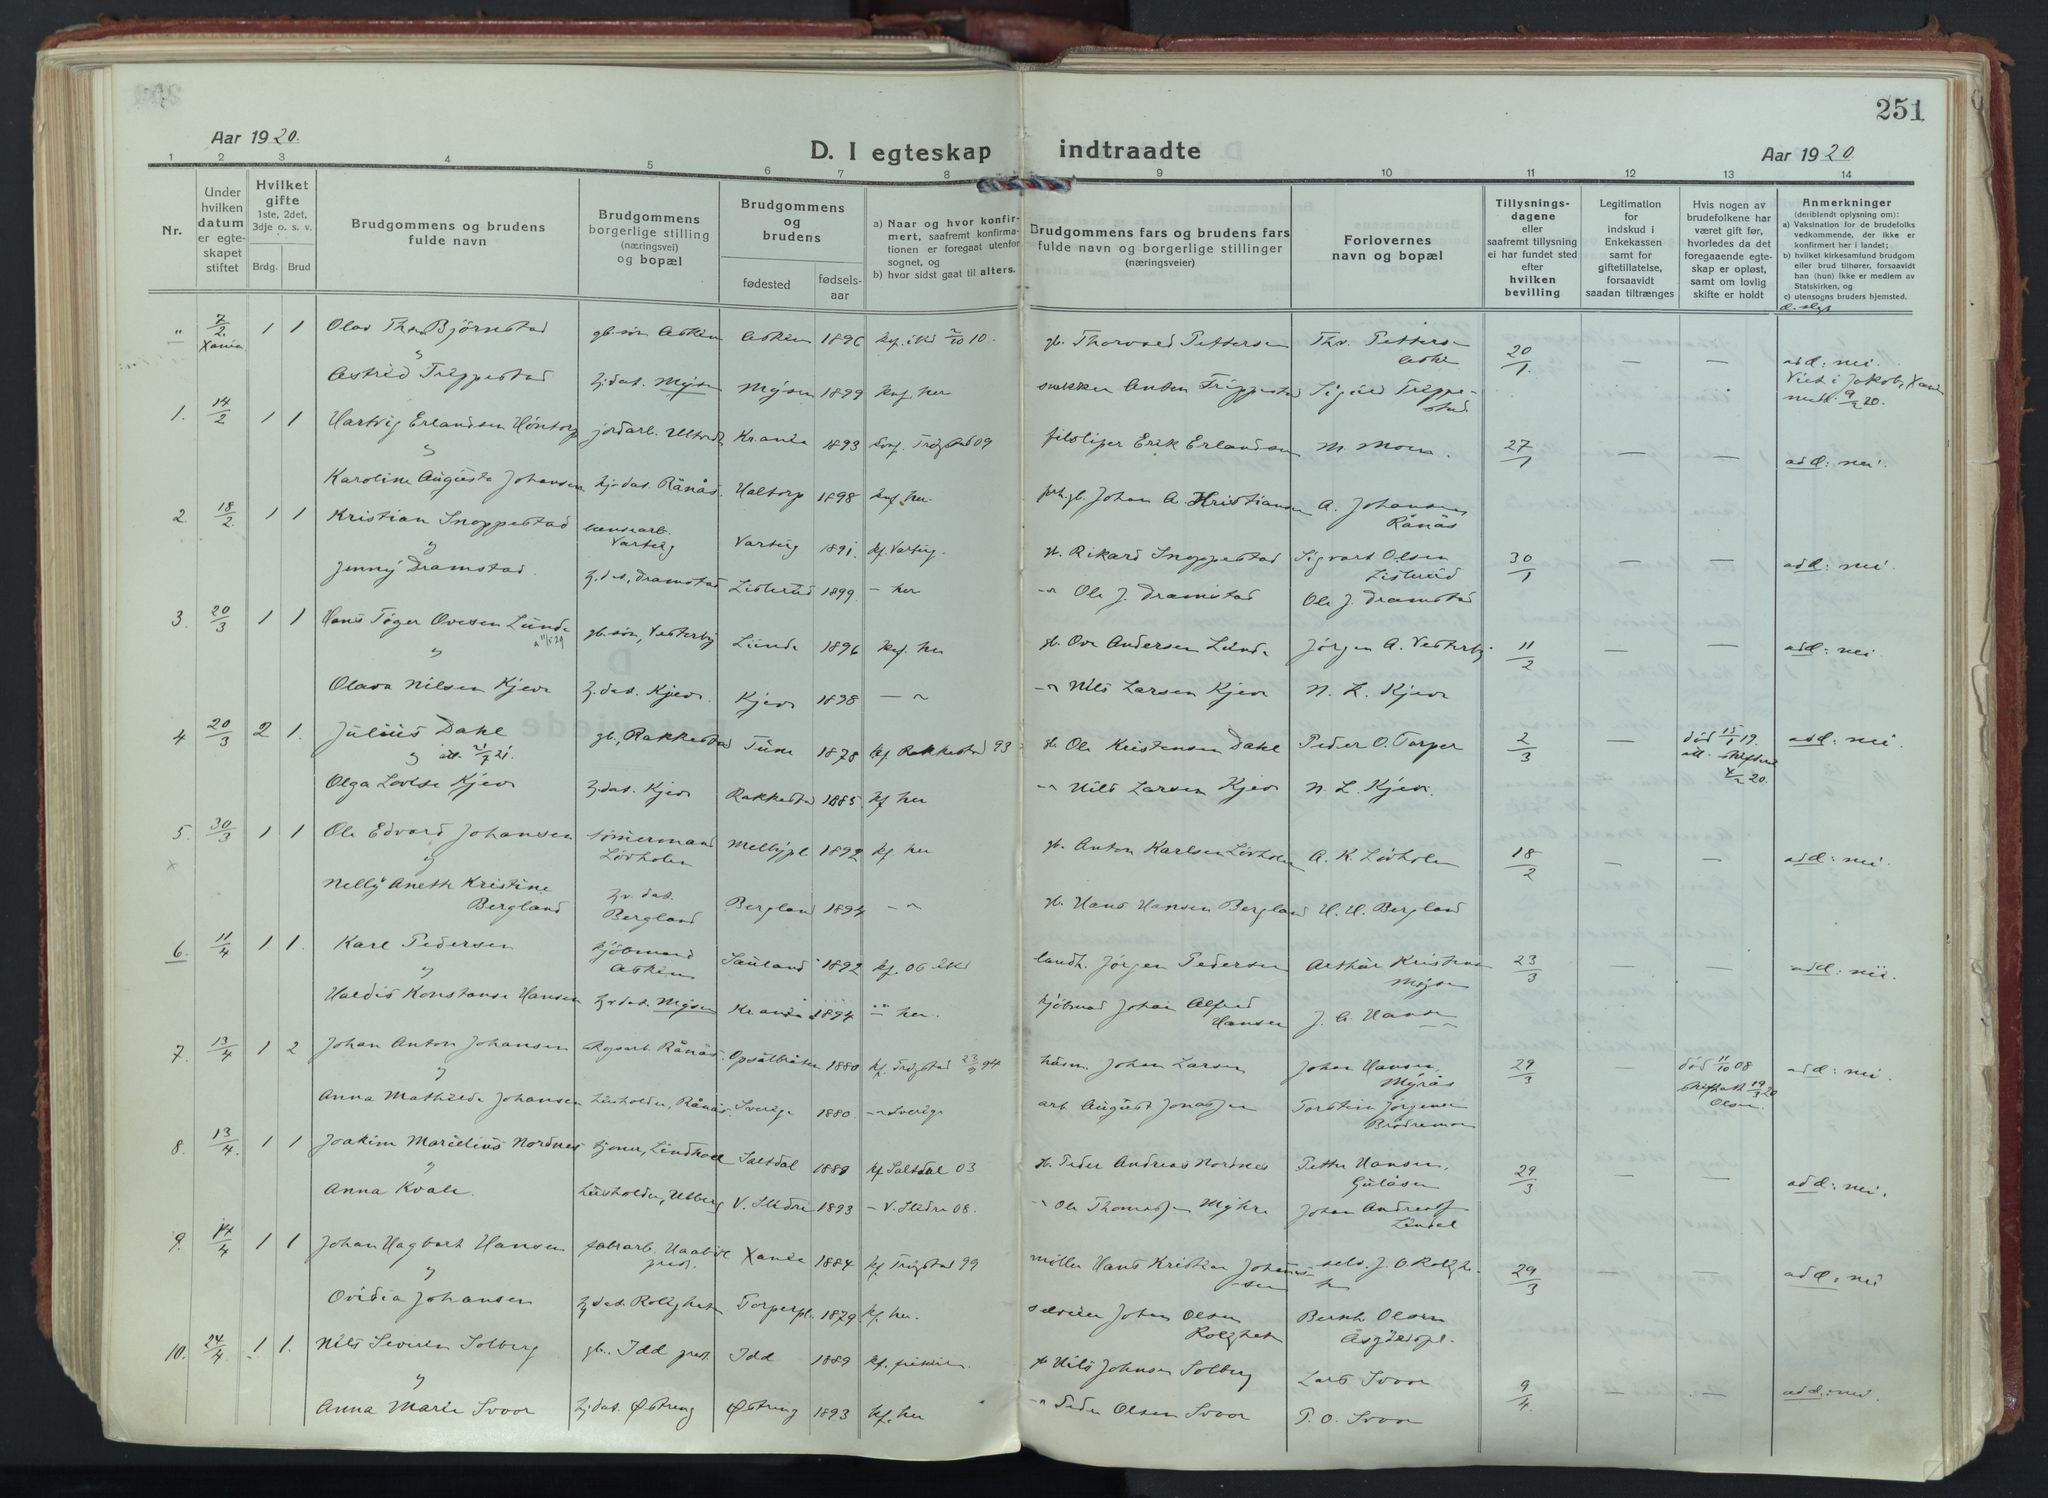 251
Aar 1920.
D. I egteskap indtraadte
Aar 1920
1 2 3 4 5 6 7 8 9 10 11 12 13 14
Nr.
Under hvilken datum er egteskapet stiftet
Hvilket gifte 1ste, 2det, 3dje o. s. v.
Brdg. Brud
Brudgommens og brudens fulde navn
Brudgommens borgerlige stilling (næringsvei) og bopæl
Brudgommens og brudens
fødested
fødselsaar
a) Naar og hvor konfirmert, saafremt konfirmationen er foregaat utenfor sognet, og
b) hvor sidst gaat til alters.
Brudgommens fars og brudens fars fulde navn og borgerlige stillinger (næringsveier)
Forlovernes navn og bopæl
Tillysningsdagene eller saafremt tillysning ei har fundet sted efter hvilken bevilling
Legitimation for indskud i Enkekassen samt for giftetillatelse, forsaavidt saadan tiltrænges
Hvis nogen av brudefolkene har været gift før, hvorledes da det foregaaende egteskap er opløst, samt om lovlig skifte er holdt
Anmerkninger (deriblendt oplysning om):
a) Vaksination for de brudefolks vedkommende, der ikke er konfirmert her i landet;
b) hvilket kirkesamfund brudgom eller brud tilhører, forsaavidt han (hun) ikke er medlem av Statskirken, og
c) utensogns bruders hjemsted.
d. slegt
" 7/2 Xania 1 1 Olav Thv. Bjørnstad gb. søn Askim Askim 1896 gb. Thorvald Pettersen Thv. Pettersen Askim 20/1 — — ad d: nei.
Astrid Trippestad hj. dat. Mysen Mysen 1899 knf. her snekker Anton Trippestad Sigurd Trippestad Viet i Jakob, Xania
1. 14/2 1 1 Hartvig Erlandsen Høntorp jordarb. Krania 1893 konf. Trøgstad 09 Erik Erlandsen M. Moen. 27/1 — — ad d: nei.
Karoline Augusta Johansen hj. dat. Rånås. Haltorp 1898 knf. her. Johan A. Kristiansen A. Johansen Rånås
2. 18/2 1 1 Kristian Snoppestad Varteig Varteig 1891. kf. Varteig. gb. Rikard Snoppestad Sigvart Olsen Listerud 30/1 — — ad d: nei.
Jenny Dramstad. hj. dat. Dramstad Listerud 1899. — her Ole J. Dramstad Ole J. Dramstad
3. 20/3 1 1 Hans Tøger Ovesen Lunde gb. søn, Vesterby Lunde 1896 knf. her gb. Ove Andersen Lunde Jørgen A. Vesterby 11/2 — — ad d: nei
Olava Nilsen Kjever hj. dat. Kjever Kjever 1898 — " Nils Larsen Kjever N. L. Kjever
4 20/3 2 1. Julius Dahl gb., Rakkestad Tune 1878 kf. Rakkestad 93 gb. Ole Kristensen Dahl Peder O. Torper 2/3 — død 15/1 19. ad d: nei.
Olga Lovise Kjever hj. dat. Kjever Rakkestad 1885 kf. her Nils Larsen Kjever N. L. Kjever.
5. 30/3 1 1 Ole Edvard Johansen tømmermand Løvholen Melbypl. 1892 kf. her gb. Anton Karlsen Løvholen A. K. Løvholen 18/2 — — ad d: nei.
Nelly Anethe Kristine Bergland hj. dat. Bergland Bergland 1894 — " gb. Hans Hansen Bergland H. H. Bergland
6. 11/4 1 1. Karl Pedersen kjøbmand Askim 1892 Jørgen Pedersen Arthur Kristensen Mysen 23/3 — — ad d: nei.
Haldis Konstanse Hansen hj. dat. Mysen Krania 1894 her. kjøbmand Johan Alfred Hansen J. A. Hansen
7. 13/4 1 2 Johan Anton Johansen Rånås. 1880 kf. Trøgstad 94 husm. Johan Larsen Johan Hansen, Myrås 29/3 — død 11/10 08 ad d: nei.
Anna Mathilde Johansen husholder., Rånås. Sverige 1880. Sverige arb August Jonassen Torstein Jørgensen
8. 13/4. 1 1 Joakim Marelius Nordnes Saltdal kf. Saltdal 03 gb. Peder Andreas Nordnes Petter Hansen, Gulåsen 29/3 — — ad d: nei.
Anna Kvale. husholder, V. Slidre 1893 — V. Slidre 08. Ole Thomassen Myhre Johan Lindal
9. 14/4 1 1 Johan Hagbart Hansen Xania 1884 kf. Trøgstad 99 møller Hans Kristian Johansen 29/3 — — ad d: nei
Ovidia Johansen hj. dat. Rolighet Torperpl. 1879 kf. her. Johan Olsen Rolighet Bernh. Olsen
10. 24/4 1 1. Nils Severin Solberg gb. Idd prst. Idd 1889 gb Nils Johnsen Solberg Lars Svoor 9/4. — — ad d: nei.
Anna Marie Svoor hj. dat. Østreng Østreng 1893 kf. her Peder Olsen Svoor P. O. Svoor